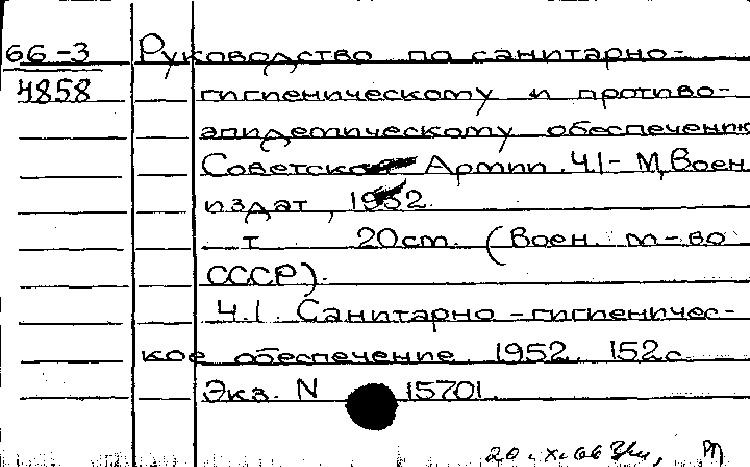 66-3 Руководство по санитарно-
4858 гигиеническому и противо-
эпидемическому обеспечению
Советской Армии. Ч.1- М, Воен
издат, 1952.
т 20см. (Воен. м-во
СССР).
Ч.1. Санитарно-гигиеничес-
кое обеспечение. 1952. 152с.
Экз. N 15701.
20.X.66